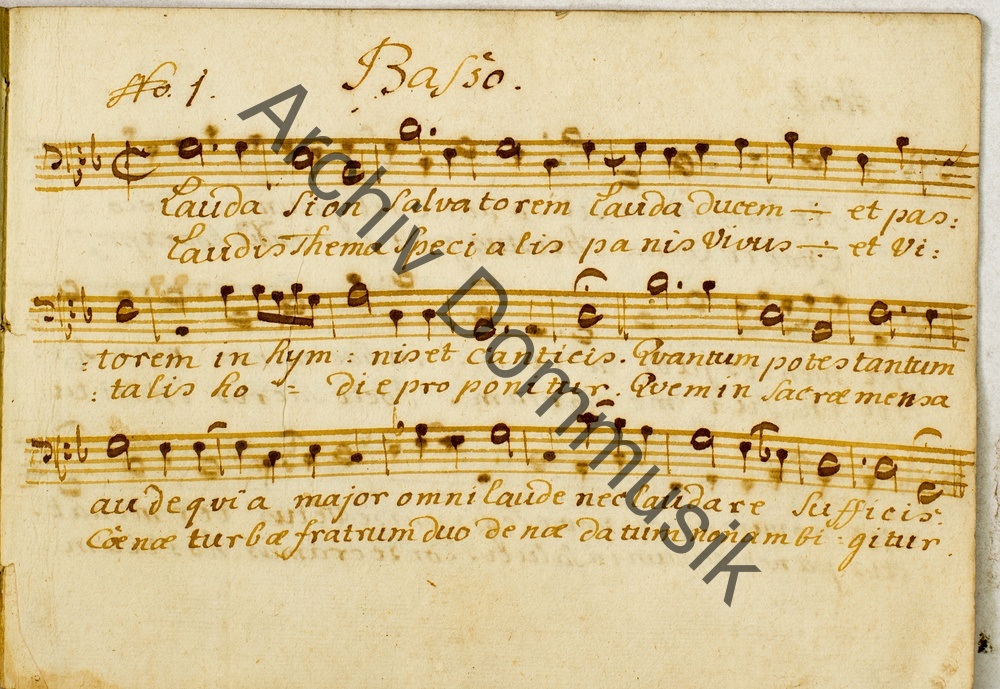 No. 1.
Basso.
Lauda Sion Salvatorem Lauda Ducem ÷ et pas:
Laudis Thema Specialis panis Vivus ÷ et Vi:
:torem in hym : nis et Canticis. Qvantum potes tantum
:talis ho = die proponitur. Qvem in Sacræ mensa
aude qvia major omni laude nec laudare Sufficis.
Cöenæ turbæ fratrum duo denæ datum non ambi - gitur.
Archiv Dommusik